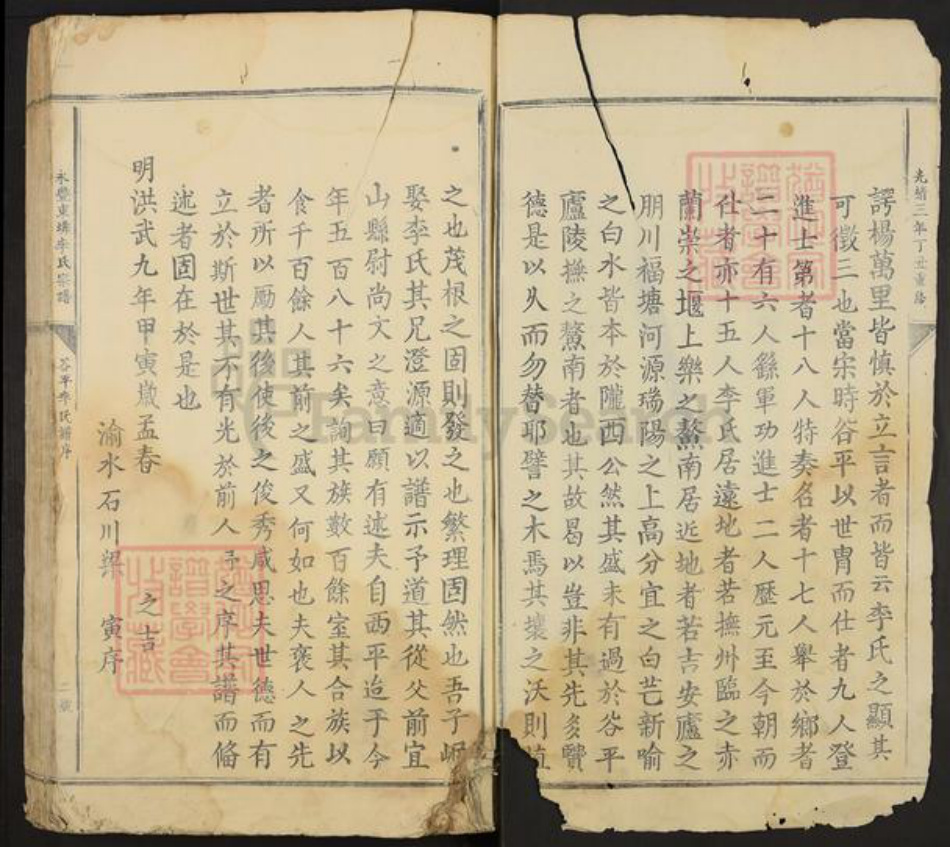 光緒三年丁丑重脩
諤楊萬里皆慎於立言者而皆云李氏之顯其
可徵三也當宋時谷平以世冑而仕者九人登
進士第者十八人特奏名者十七人舉於鄉者
二十有六人繇軍功進士二人歷元至今朝而
仕者亦十五人李氏居遠地者若撫州臨之赤
蘭崇之堰上樂之鰲南居近地者若吉安廬之
朋川福塘河源瑞陽之上高分宜之白芒新喻
之白水皆本於隴西公然其盛未有過於谷平
廬陵撫之鰲南者也其故曷以豈非其先多賢
德是以乆而勿替耶譬之木焉其壤之沃則植
之也茂根之固則發之也繁理固然也吾子岷
娶李氏其兄澄源適以譜示予道其從父前宜
山縣尉尚文之意曰願有述夫自西平迨于今
年五百八十六矣詢其族數百餘室其合族以
食千百餘人其前之盛又何如也夫褒人之先
者所以勵其後使後之俊秀咸思夫世德而有
立於斯世其不有光於前人予之序其譜而偹
述者固在於是也
明洪武九年甲寅嵗孟春 之吉
渝水石川梁 寅序
永豐東塘李氏宗譜
谷平李氏譜序
二號
FamilySearch